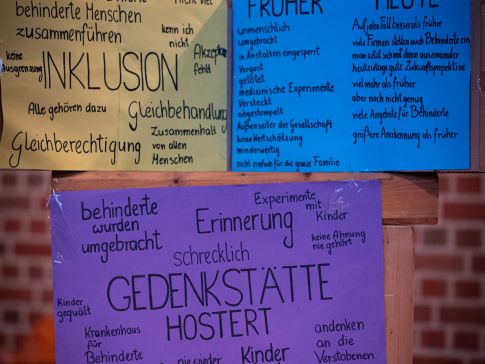 behinderte Menschen
zusammenführen
kenn ich
nicht
Akzeptanz
fehlt
keine
Ausgrenzung
INKLUSION
Alle gehören dazu
Gleichbehandlung
Gleichberechtigung
Zusammenhalt
von allen
Menschen
FRÜHER
unmenschlich
umgebracht
in Anstalten eingesperrt
Vergast
getötet
medizinische Experimente
Versteckt
abgestempelt
Außenseiter der Gesellschaft
keine Wertschätzung
minderwertig
nicht einfach für die ganze Familie
HEUTE
Auf jeden Fall besser als früher
viele Firmen stellen auch Behinderte ein
man setzt sich mit ihnen auseinander
heutzutage gute Zukunftsperspektive
viel mehr als früher
aber noch nicht genug
viele Angebote für Behinderte
größere Anerkennung als früher
behinderte
wurden
umgebracht
Erinnerung
Experimente
mit
Kinder
keine Ahnung
nie gehört
schrecklich
GEDENKSTÄTTE
HOSTERT
Kinder
gequält
Krankenhaus
für
Behinderte
Kinder
andenken
an die
Verstobenen